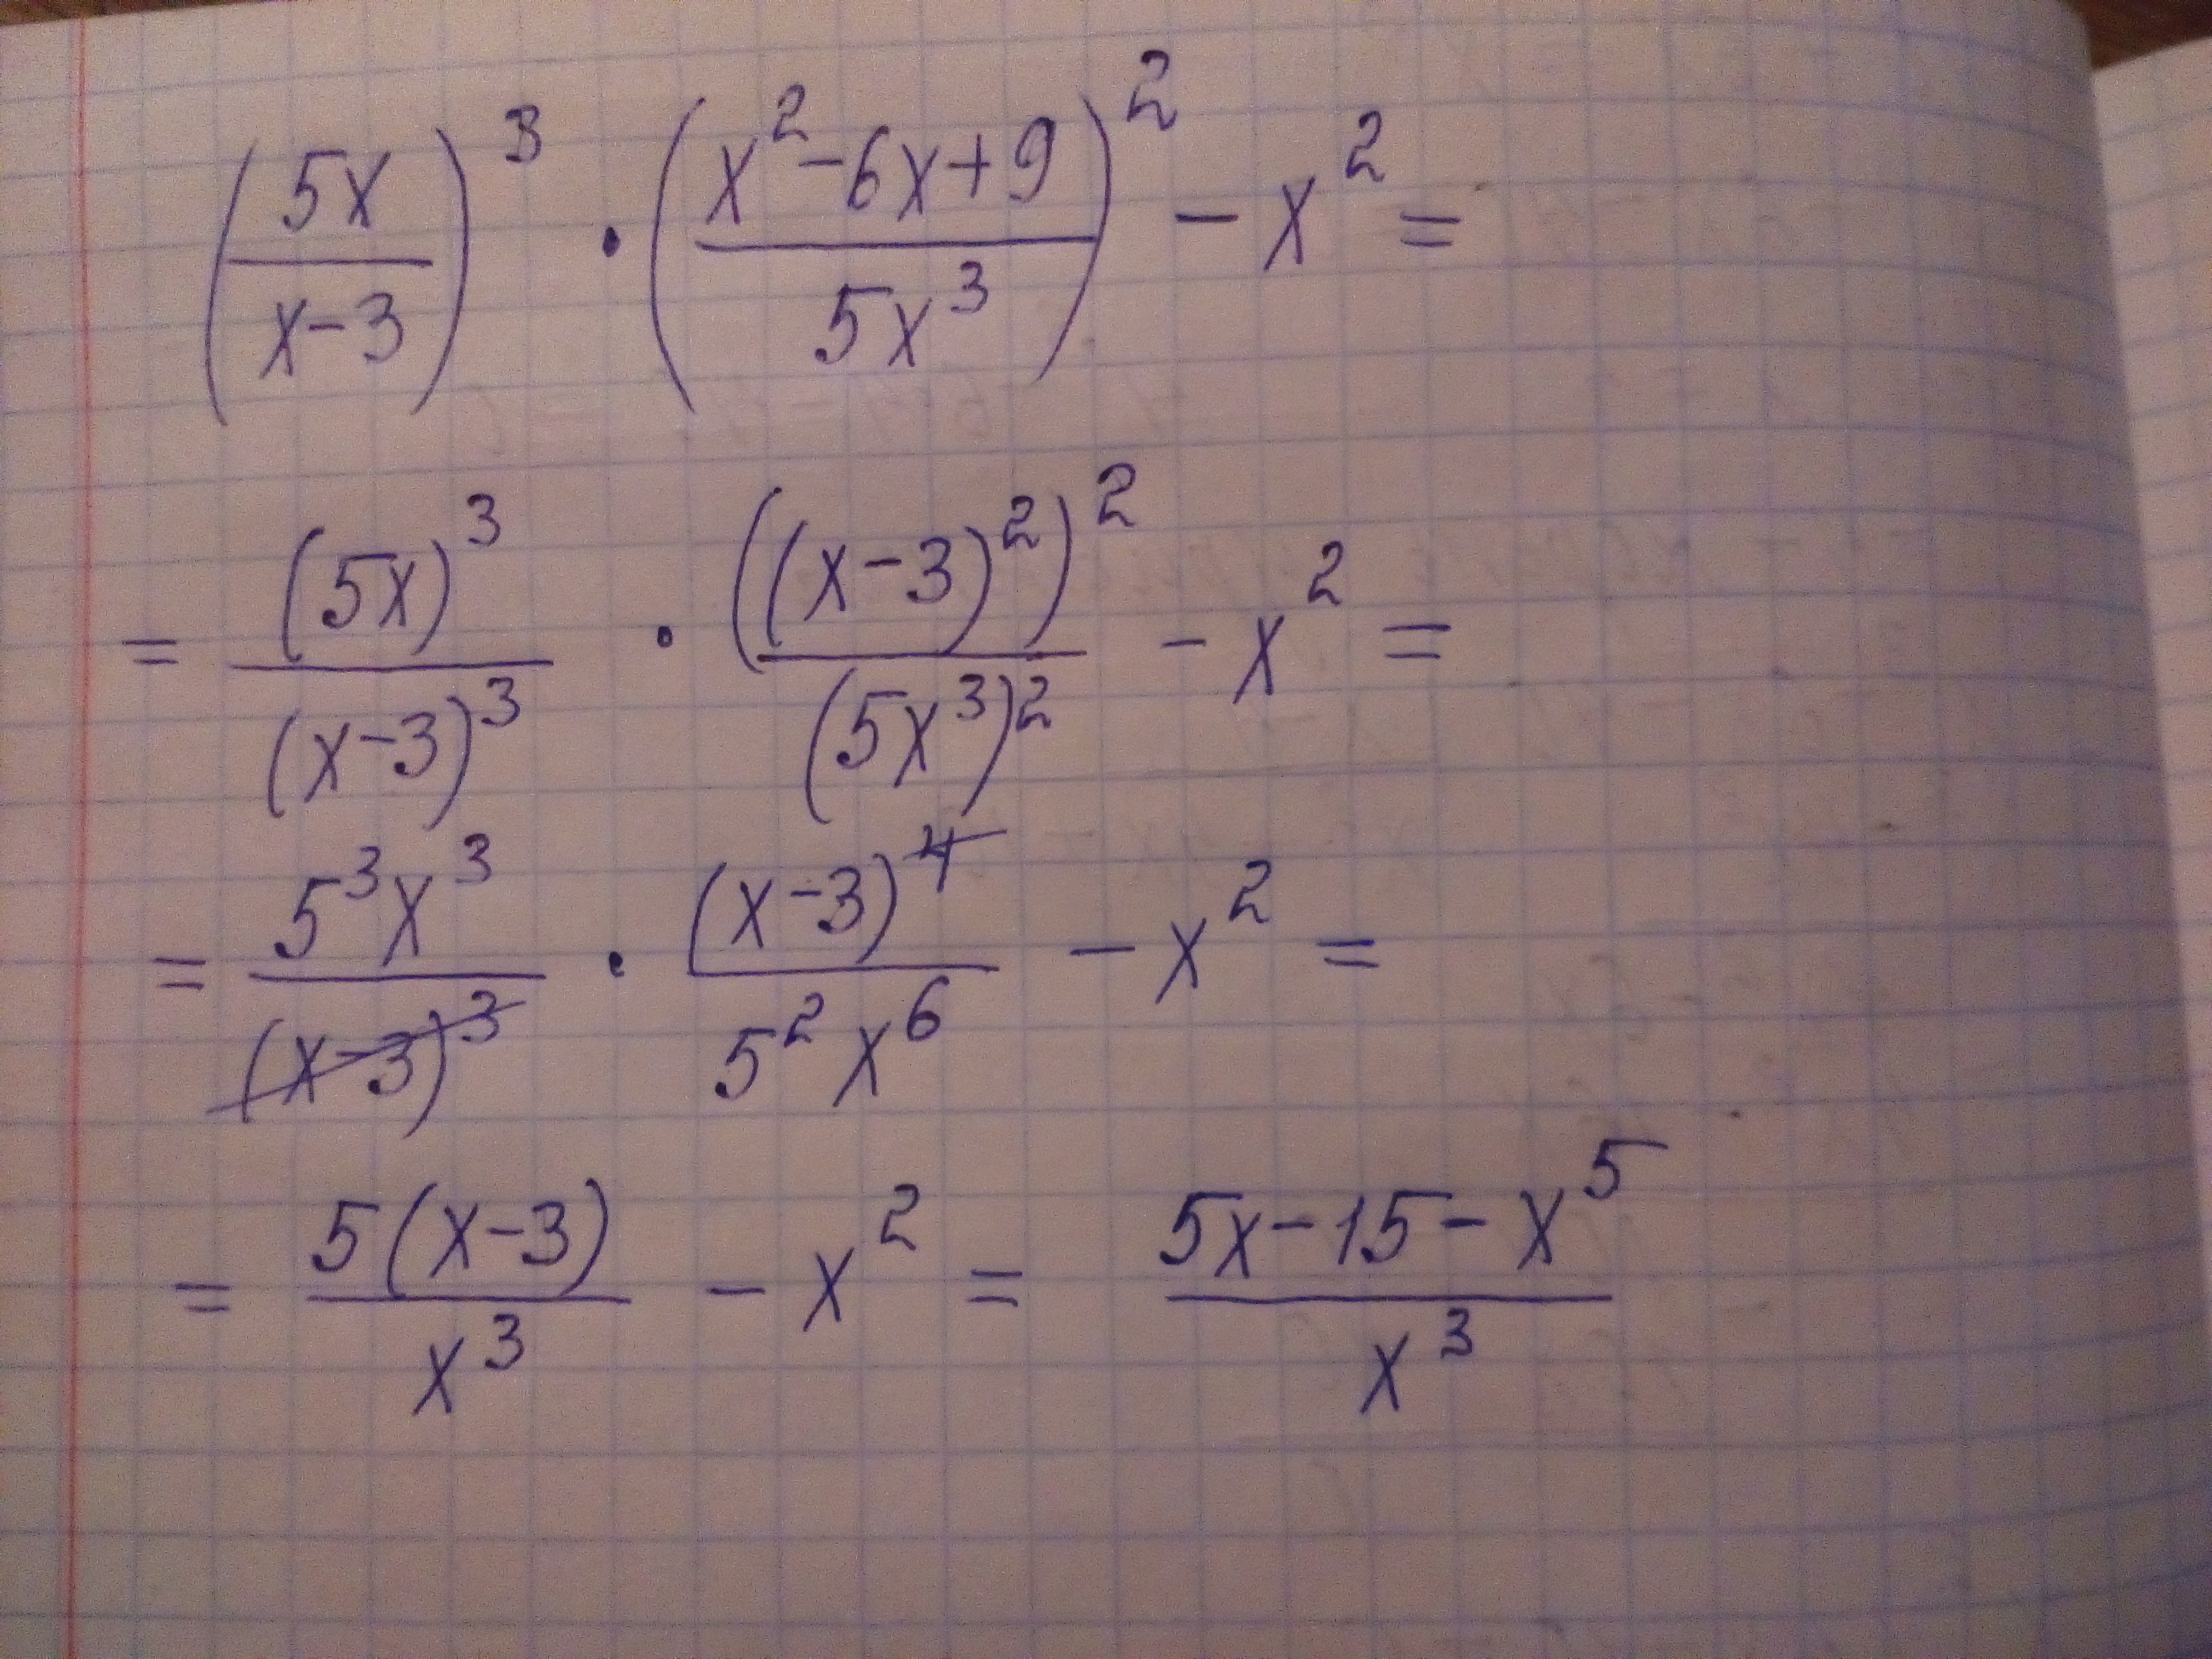 (5x/(x-3))^3 · ((x^2-6x+9)/(5x^3))^2 - x^2 =
= (5x)^3/(x-3)^3 · ((x-3)^2)^2/(5x^3)^2 - x^2 =
= 5^3x^3/(x-3)^3 · (x-3)^4/(5^2x^6) - x^2 =
= 5(x-3)/x^3 - x^2 = (5x-15-x^5)/x^3